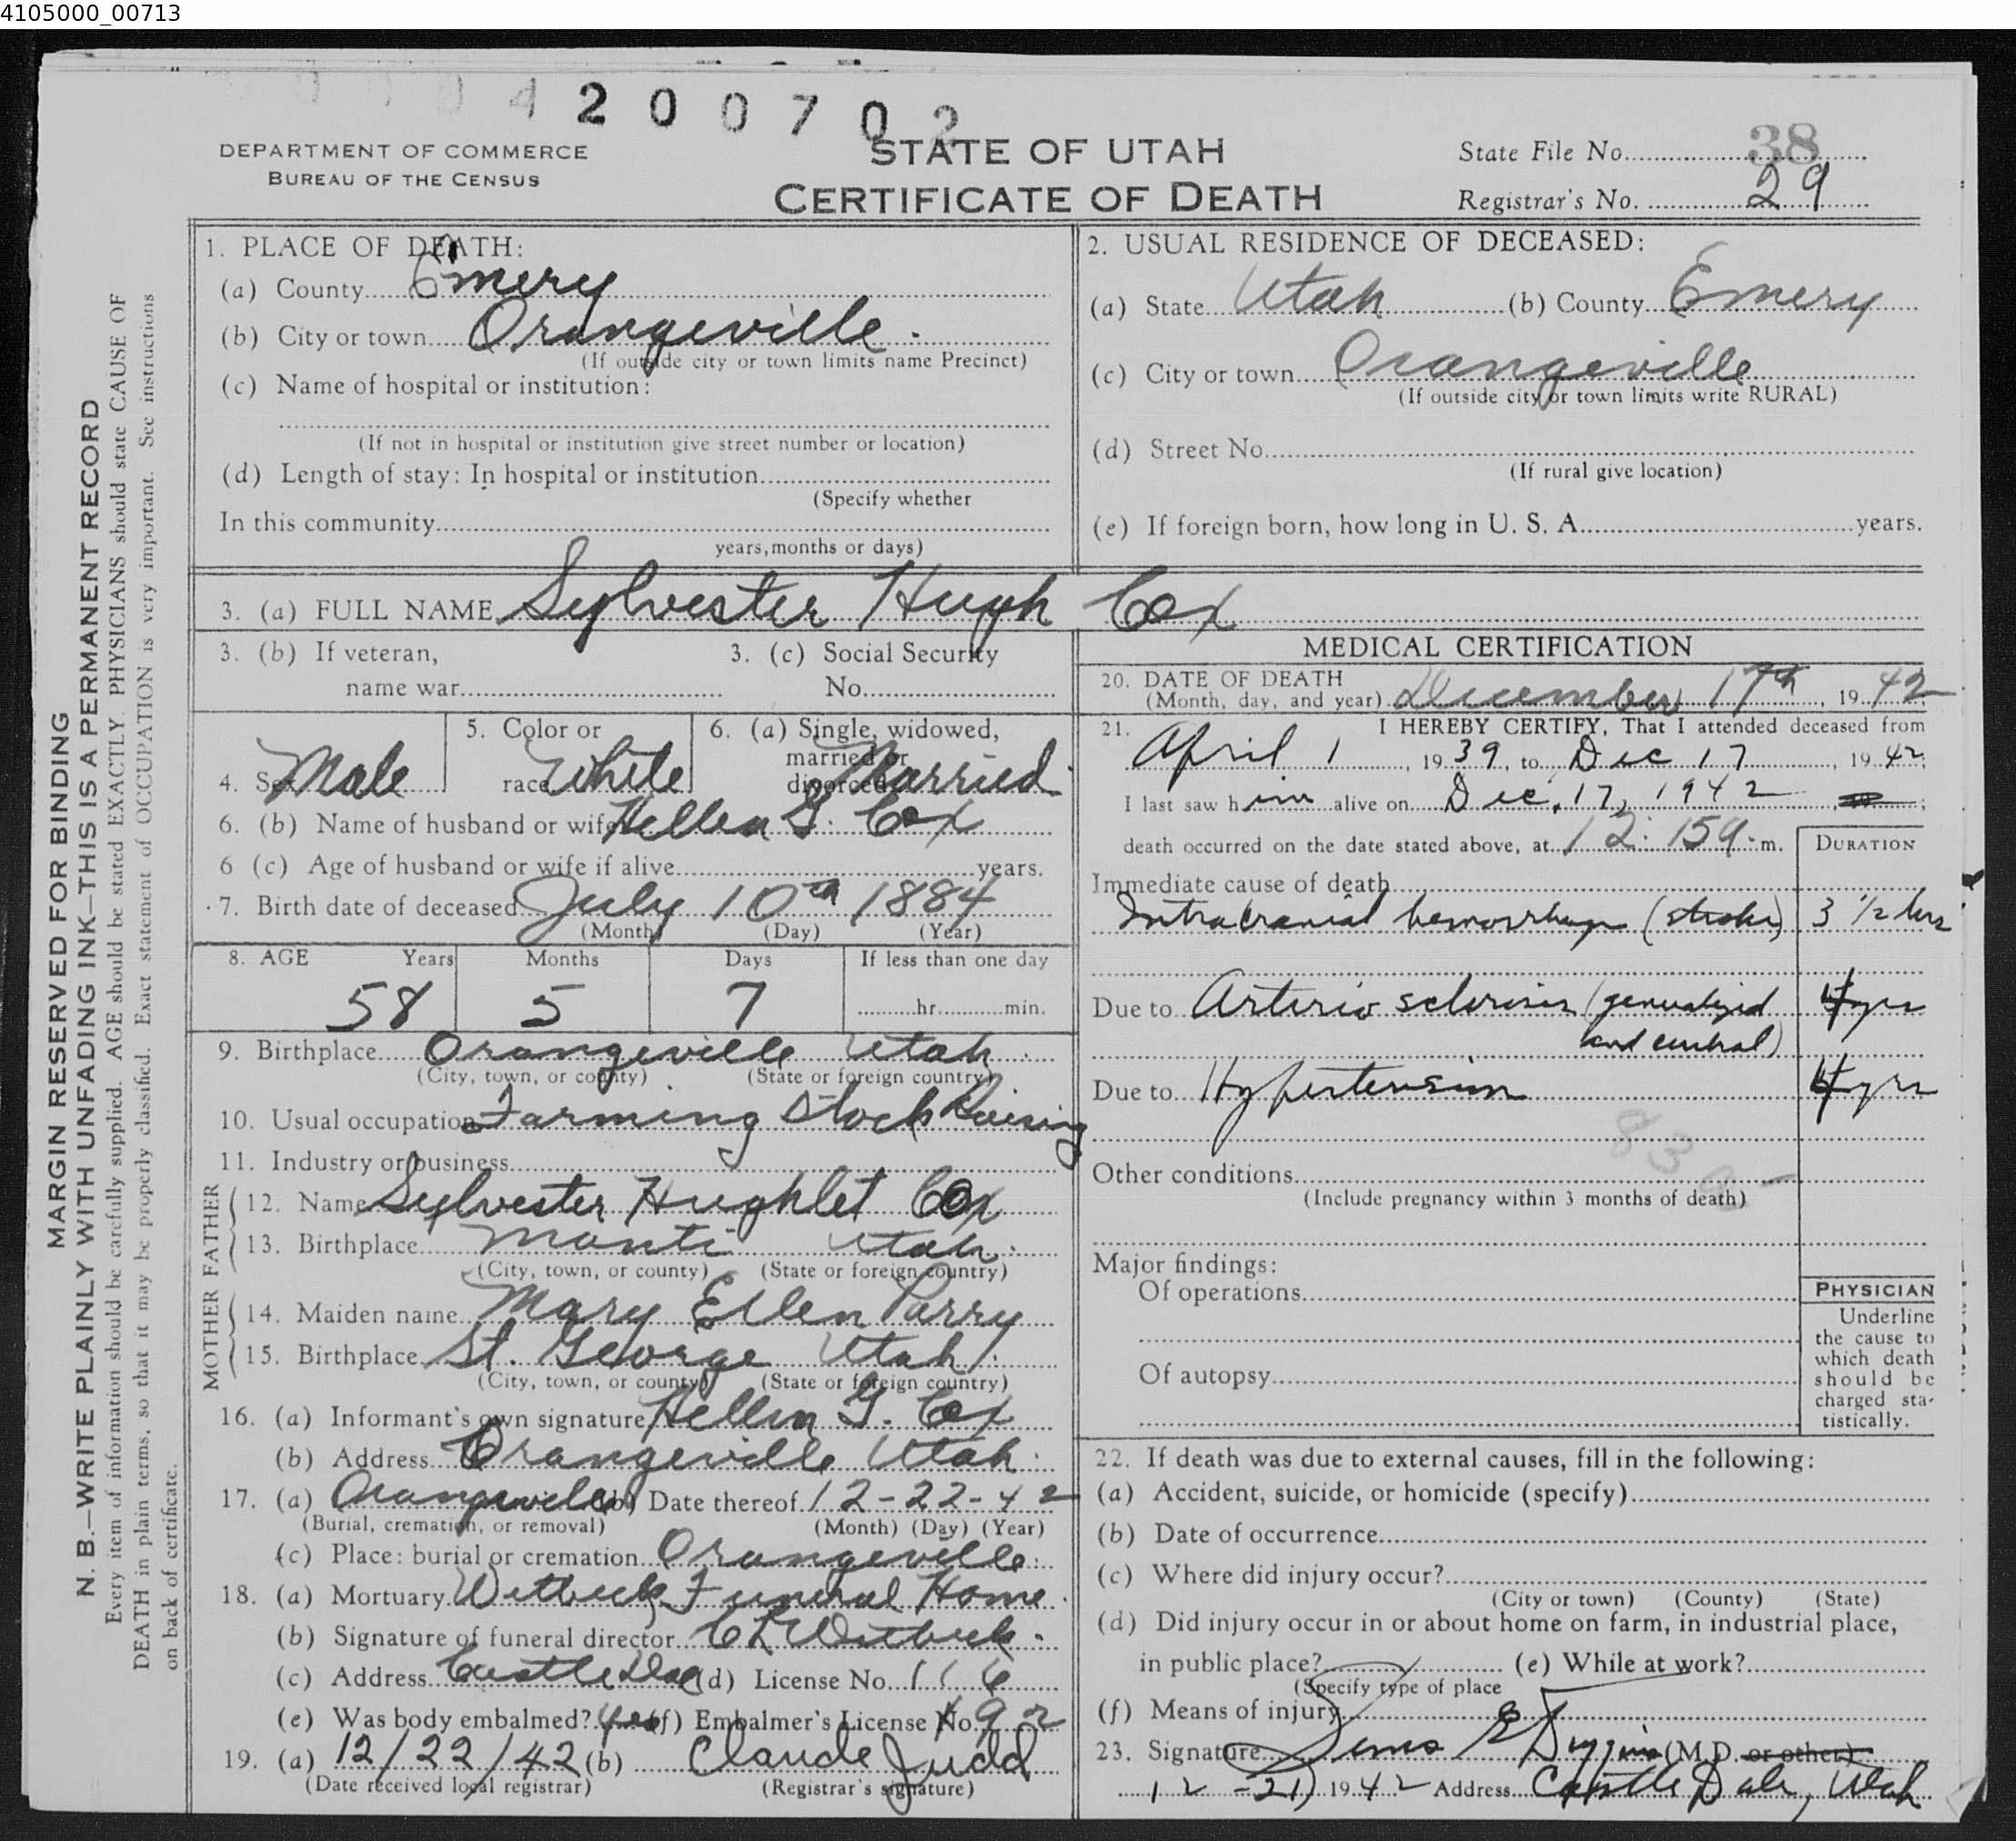 4105000_00713
4 2 0 0 7 0 2
DEPARTMENT OF COMMERCE
BUREAU OF THE CENSUS
STATE OF UTAH
CERTIFICATE OF DEATH
State File No. 38
Registrar's No. 29
MARGIN RESERVED FOR BINDING
N. B.—WRITE PLAINLY WITH UNFADING INK—THIS IS A PERMANENT RECORD
Every item of information should be carefully supplied. AGE should be stated EXACTLY. PHYSICIANS should state CAUSE OF
DEATH in plain terms, so that it may be properly classified. Exact statement of OCCUPATION is very important. See instructions
on back of certificate.
1. PLACE OF DEATH:
(a) County Emery
(b) City or town Orangeville.
(If outside city or town limits name Precinct)
(c) Name of hospital or institution:
(If not in hospital or institution give street number or location)
(d) Length of stay: In hospital or institution
(Specify whether
In this community
years, months or days)
2. USUAL RESIDENCE OF DECEASED:
(a) State Utah (b) County Emery
(c) City or town Orangeville
(If outside city or town limits write RURAL)
(d) Street No.
(If rural give location)
(e) If foreign born, how long in U. S. A. years.
3. (a) FULL NAME Sylvester Hugh Cox
3. (b) If veteran,
name war
3. (c) Social Security
No.
4. Sex Male
5. Color or
race White
6. (a) Single, widowed,
married or
divorced Married
6. (b) Name of husband or wife Hellen G. Cox
6 (c) Age of husband or wife if alive years.
7. Birth date of deceased July 10th 1884
(Month) (Day) (Year)
8. AGE Years Months Days If less than one day
58 5 7 hr. min.
9. Birthplace Orangeville Utah.
(City, town, or county) (State or foreign country)
10. Usual occupation Farming Stock Raising
11. Industry or business
FATHER
12. Name Sylvester Hughlet Cox
13. Birthplace Manti Utah.
(City, town, or county) (State or foreign country)
MOTHER
14. Maiden name Mary Ellen Parry
15. Birthplace St. George Utah.
(City, town, or county) (State or foreign country)
16. (a) Informant's own signature Hellen G. Cox
(b) Address Orangeville Utah.
17. (a) Orangeville (b) Date thereof 12-22-42
(Burial, cremation, or removal) (Month) (Day) (Year)
(c) Place: burial or cremation Orangeville.
18. (a) Mortuary Witbeck Funeral Home.
(b) Signature of funeral director C L Witbeck.
(c) Address Castle Dale (d) License No. 116
(e) Was body embalmed? Yes (f) Embalmer's License No. 92
19. (a) 12/22/42 (b) Claude Judd
(Date received local registrar) (Registrar's signature)
MEDICAL CERTIFICATION
20. DATE OF DEATH
(Month, day, and year) December 17th, 1942
21. I HEREBY CERTIFY, That I attended deceased from
April 1, 1939, to Dec 17, 1942;
I last saw him alive on Dec. 17, 1942;
death occurred on the date stated above, at 12:15 a. m.
DURATION
Immediate cause of death
Intracranial hemorrhage (stroke) 3 1/2 hrs
Due to Arterio sclerosis (generalized 4 yrs
and cerebral)
Due to Hypertension 4 yrs
83 a -
Other conditions
(Include pregnancy within 3 months of death)
Major findings:
Of operations
Of autopsy
PHYSICIAN
Underline
the cause to
which death
should be
charged sta-
tistically.
22. If death was due to external causes, fill in the following:
(a) Accident, suicide, or homicide (specify)
(b) Date of occurrence
(c) Where did injury occur?
(City or town) (County) (State)
(d) Did injury occur in or about home on farm, in industrial place,
in public place? (e) While at work?
(Specify type of place
(f) Means of injury
23. Signature E Duggins (M.D. or other)
12-21, 1942 Address Castle Dale, Utah